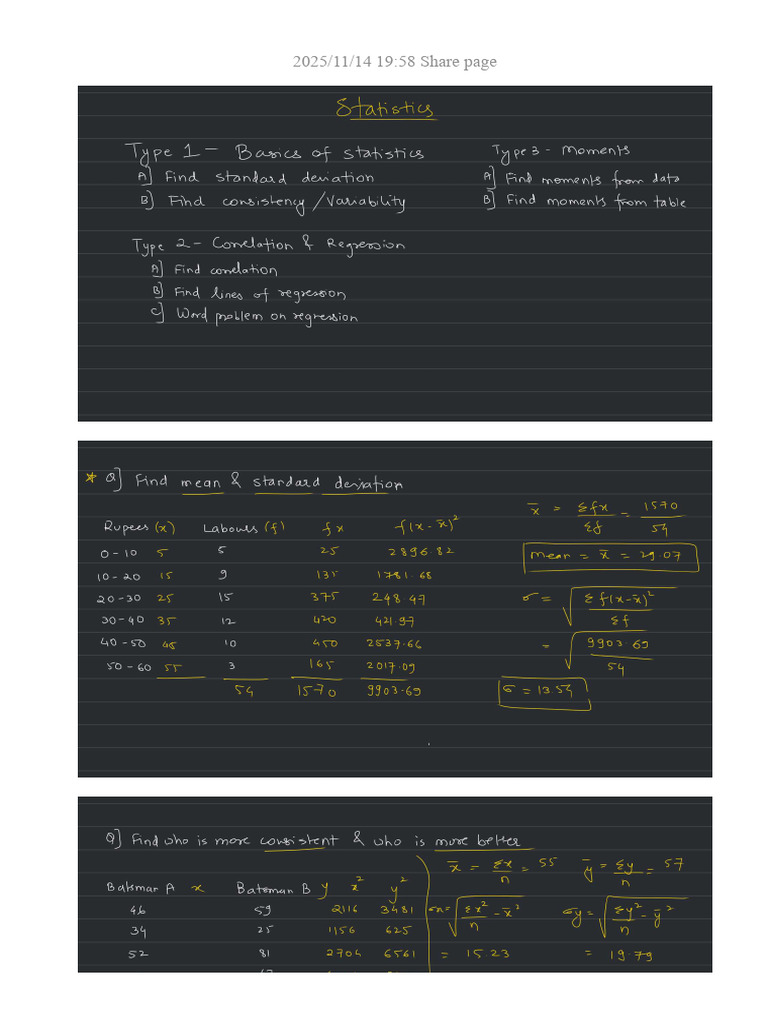 2025/11/14 19:58 Share page
Statistics
Type 1 - Basics of statistics
A] Find standard deviation
B] Find consistency / Variability
Type 3 - Moments
A] Find moments from data
B] Find moments from table
Type 2 - Correlation & Regression
A] Find correlation
B] Find lines of regression
C] Word problem on regression
* Q] Find mean & standard deviation
Rupees (x) Labours (f) fx f(x-x̄)²
0-10 5 5 25 2896.82
10-20 15 9 135 1781.68
20-30 25 15 375 248.47
30-40 35 12 420 421.97
40-50 45 10 450 2537.66
50-60 55 3 165 2017.09
54 1570 9903.69
x̄ = Σfx/Σf = 1570/54
mean = x̄ = 29.07
σ = √(Σf(x-x̄)²/Σf)
= √(9903.69/54)
σ = 13.54
Q] Find who is more consistent & who is more better
Batsmar A x Batsman B y x² y²
46 59 2116 3481
34 25 1156 625
52 81 2704 6561
x̄ = Σx/n = 55 ȳ = Σy/n = 57
σx = √(Σx²/n - x̄²) σy = √(Σy²/n - ȳ²)
= 15.23 = 19.79